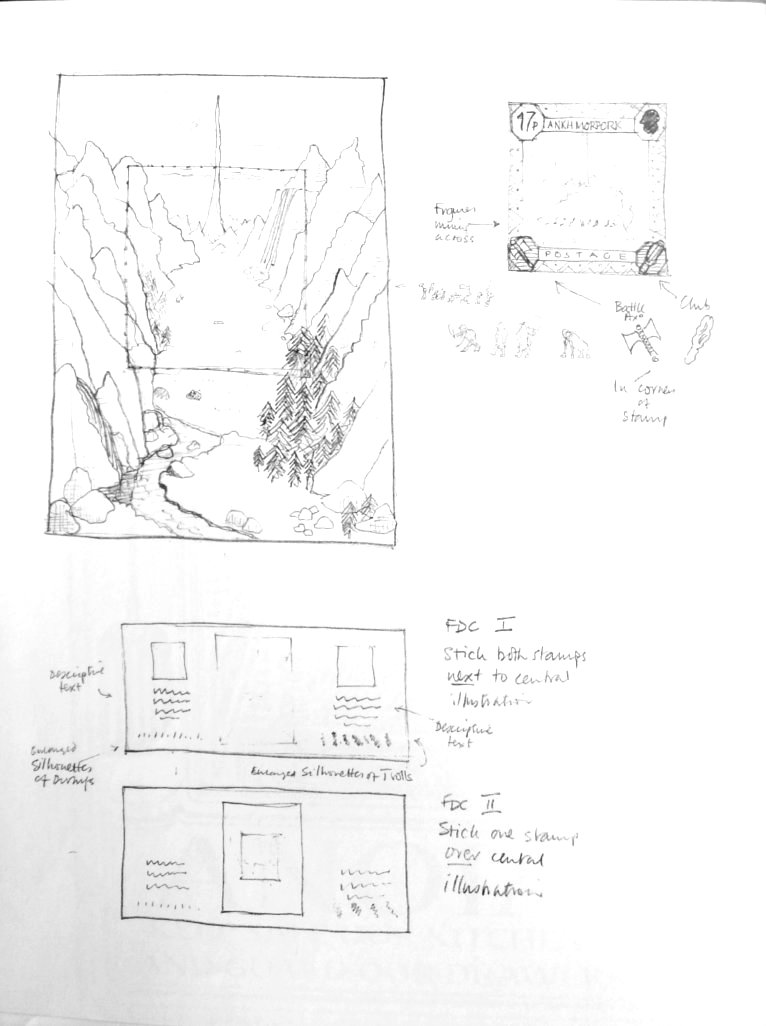 17p ANKH MORPORK
Figures
across
POSTAGE
Battle
Axe
Club
In corner
of
Stamp
FDC I
Stick both stamps
next to central
illustration
Descriptive
text
Descriptive
text
Enlarged
Silhouettes
of Dwarfs
Enlarged Silhouettes of Trolls
FDC II
Stick one stamp
over central
illustration